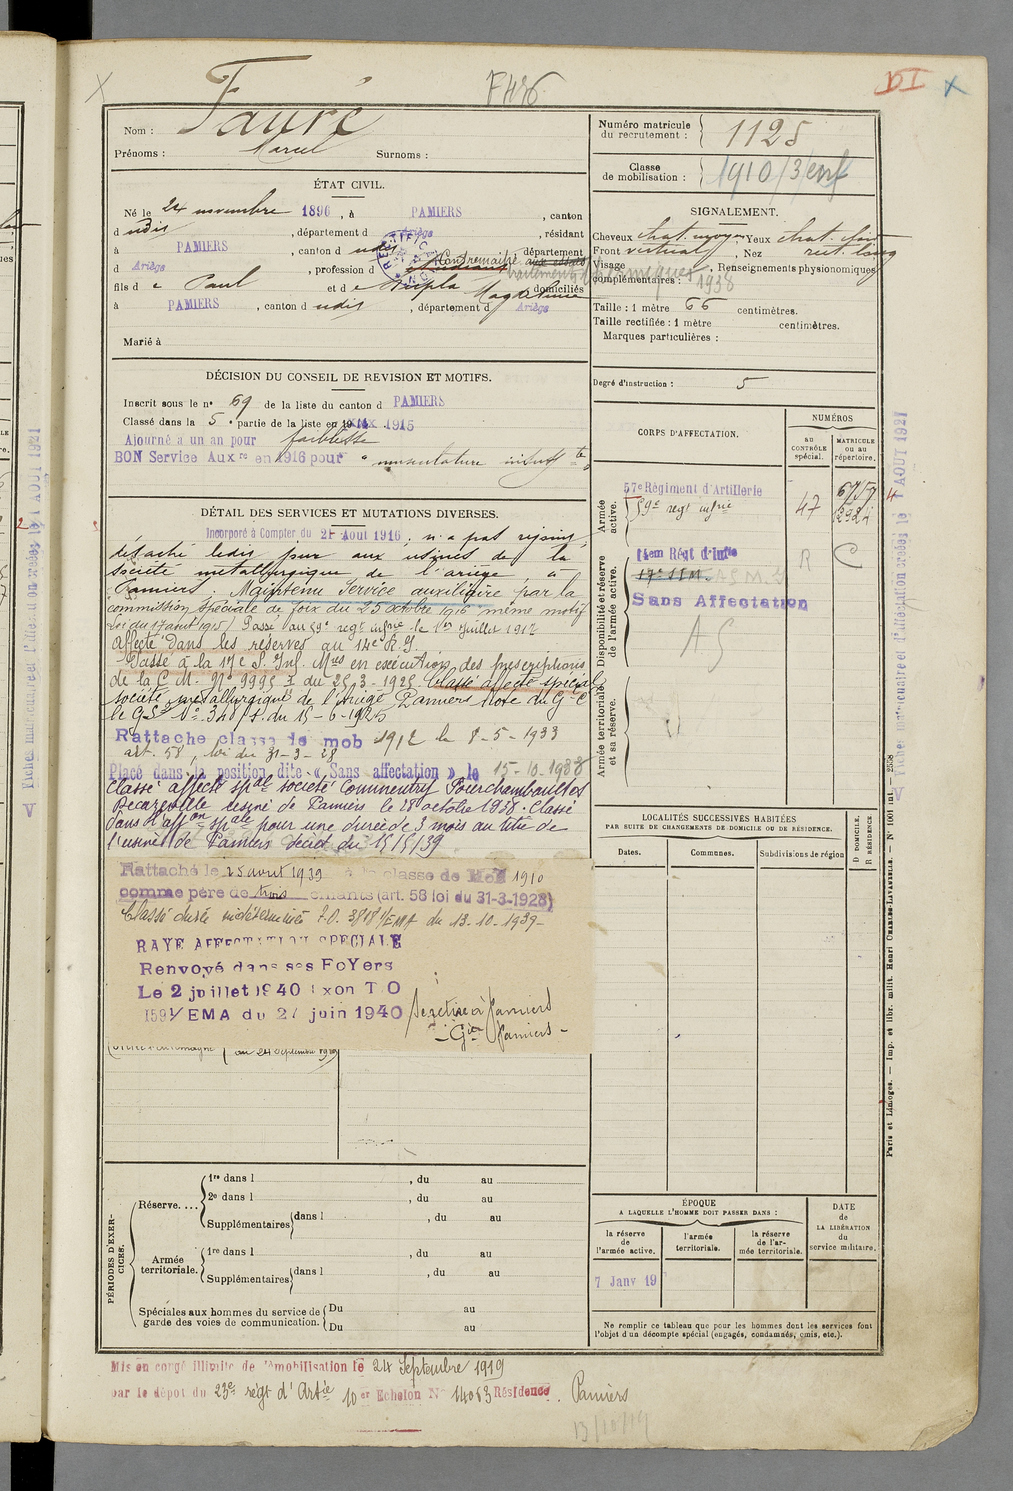 F436
Nom : Fauré
Prénoms : Marcel Surnoms :
Numéro matricule du recrutement : 1125
Classe de mobilisation : 1910/3 enf
ÉTAT CIVIL.
Né le 24 novembre 1896, à PAMIERS, canton
d udis, département d Ariège, résidant
à PAMIERS, canton d udis, département
d Ariège, profession d étudiant Contremaître aux essais
traitements thermiques 1938
fils d e Paul et d e Magdeleine domiciliés
à PAMIERS, canton d udis, département d Ariège
Marié à
SIGNALEMENT.
Cheveux chat. moyen, Yeux chat. clair
Front vertical, Nez rect. long
Visage, Renseignements physionomiques
complémentaires :
Taille : 1 mètre 66 centimètres.
Taille rectifiée : 1 mètre centimètres.
Marques particulières :
Degré d'instruction : 5
DÉCISION DU CONSEIL DE REVISION ET MOTIFS.
Inscrit sous le n° 69 de la liste du canton d PAMIERS
Classé dans la 5e partie de la liste en 19 1915
Ajourné à un an pour faiblesse
BON Service Auxre en 1916 pour "musculature insuffte"
DÉTAIL DES SERVICES ET MUTATIONS DIVERSES.
Incorporé à Compter du 21 Aout 1916, n'a pas rejoint,
détaché ledit jour aux usines de la
société métallurgique de l'ariège, à
Pamiers. Maintenu Service auxiliaire par la
commission spéciale de foix du 25 octobre 1916 même motif
Loi du 17 aout 1915) Passé au 59e regt infrie le 1er juillet 1917
Affecté dans les réserves au 14e R.I.
Passé à la 17e S. Inf. Mres en exécution des prescriptions
de la C.M. No 9995 du 25-3-1925 Classé affecté spécial
société métallurgique de l'Ariège Pamiers Note du Gal Ct
le G.S. No 348/S. du 15-6-1925
Rattaché classe de mob 1912 le 8-5-1933
art. 58, loi du 31-3-28
Placé dans la position dite « Sans affectation » le 15-10-1938
Classé affecté spal société Commentry Fourchambault et
Decazeville usine de Pamiers le 28 octobre 1938. Classé
dans l'affon spale pour une durée de 3 mois au titre de
l'usine de Pamiers décret du 15/5/39
Rattaché le 25 avril 1939 à la classe de Mob 1910
comme père de trois enfants (art. 58 loi du 31-3-1928)
Classé durée indéterminée I.O. 3818 1/EMA du 13-10-1939-
RAYE AFFECTATION SPECIALE
Renvoyé dans ses FoYers
Le 2 juillet 1940 Exon T.O
1591/EMA du 27 juin 1940
Se retire à Pamiers
- Gie Pamiers -
au 24 Septembre 1919
CORPS D'AFFECTATION.
NUMÉROS
au CONTRÔLE spécial.
MATRICULE ou au répertoire.
Armée active.
57e Régiment d'Artillerie 6757
59e regt infrie 47
Disponibilité et réserve de l'armée active.
14em Régt d'Infie R C
17e S I M. A S M. I
Sans Affectation
A S
Armée territoriale et sa réserve.
LOCALITÉS SUCCESSIVES HABITÉES
PAR SUITE DE CHANGEMENTS DE DOMICILE OU DE RÉSIDENCE.
D DOMICILE. R RÉSIDENCE.
Dates. Communes. Subdivisions de région
PÉRIODES D'EXERCICES.
Réserve.... 1re dans l , du au
2e dans l , du au
Supplémentaires dans l , du au
Armée territoriale. 1re dans l , du au
Supplémentaires dans l , du au
Spéciales aux hommes du service de garde des voies de communication. Du au
Du au
ÉPOQUE
A LAQUELLE L'HOMME DOIT PASSER DANS :
la réserve de l'armée active.
l'armée territoriale.
la réserve de l'armée territoriale.
DATE de LA LIBÉRATION du service militaire.
7 Janv 19
Ne remplir ce tableau que pour les hommes dont les services font
l'objet d'un décompte spécial (engagés, condamnés, omis, etc.).
Mis en congé illimité de démobilisation le 24 Septembre 1919
par le dépôt du 23e régt d'Artie 10er Echelon N° 14063 Résidence. Pamiers
Fiches matriculaire et d'affectation créées le 1 AOUT 1921
Paris et Limoges. — Imp. et libr. milit. Henri CHARLES-LAVAUZELLE. — N° 1001 int. — 2558